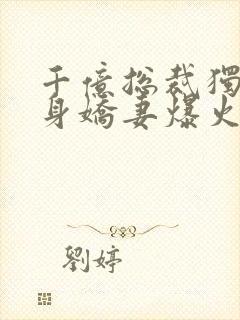 千億総裁獨
身嬌妻爆火
劉婷